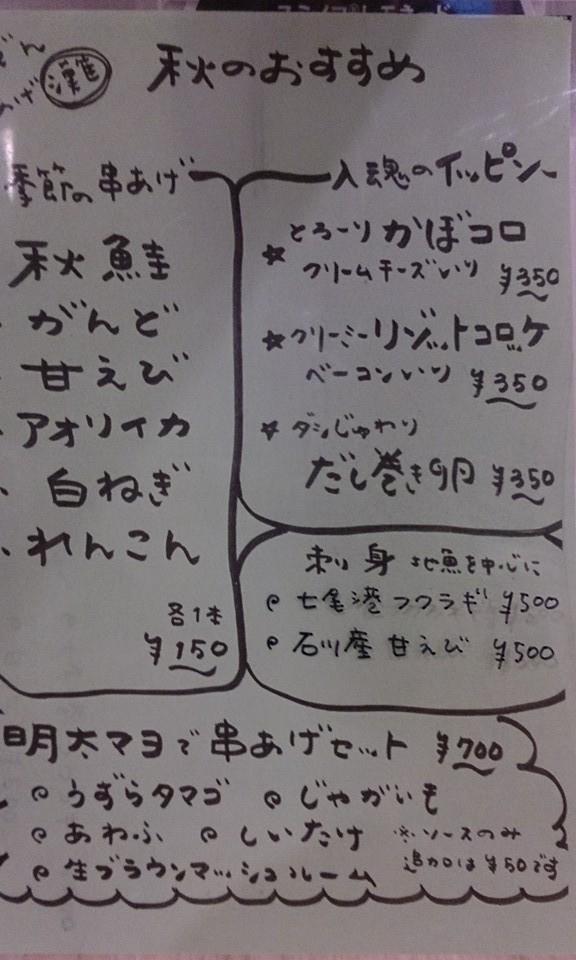 秋のおすすめ
季節の串あげ
秋鮭
がんど
甘えび
アオリイカ
白ねぎ
れんこん
各1本
¥150
入魂のイッピン
★とろーりかぼコロ
クリームチーズいり ¥350
★クリーミーリゾットコロッケ
ベーコンいり ¥350
★ダシじゅわり
だし巻き卵 ¥350
刺身 地魚を中心に
七尾港フクラギ ¥500
石川産甘えび ¥500
明太マヨで串あげセット ¥700
うずらタマゴ じゃがいも
あわふ しいたけ ※ソースのみ
生ブラウンマッシュルーム 追加は¥50です